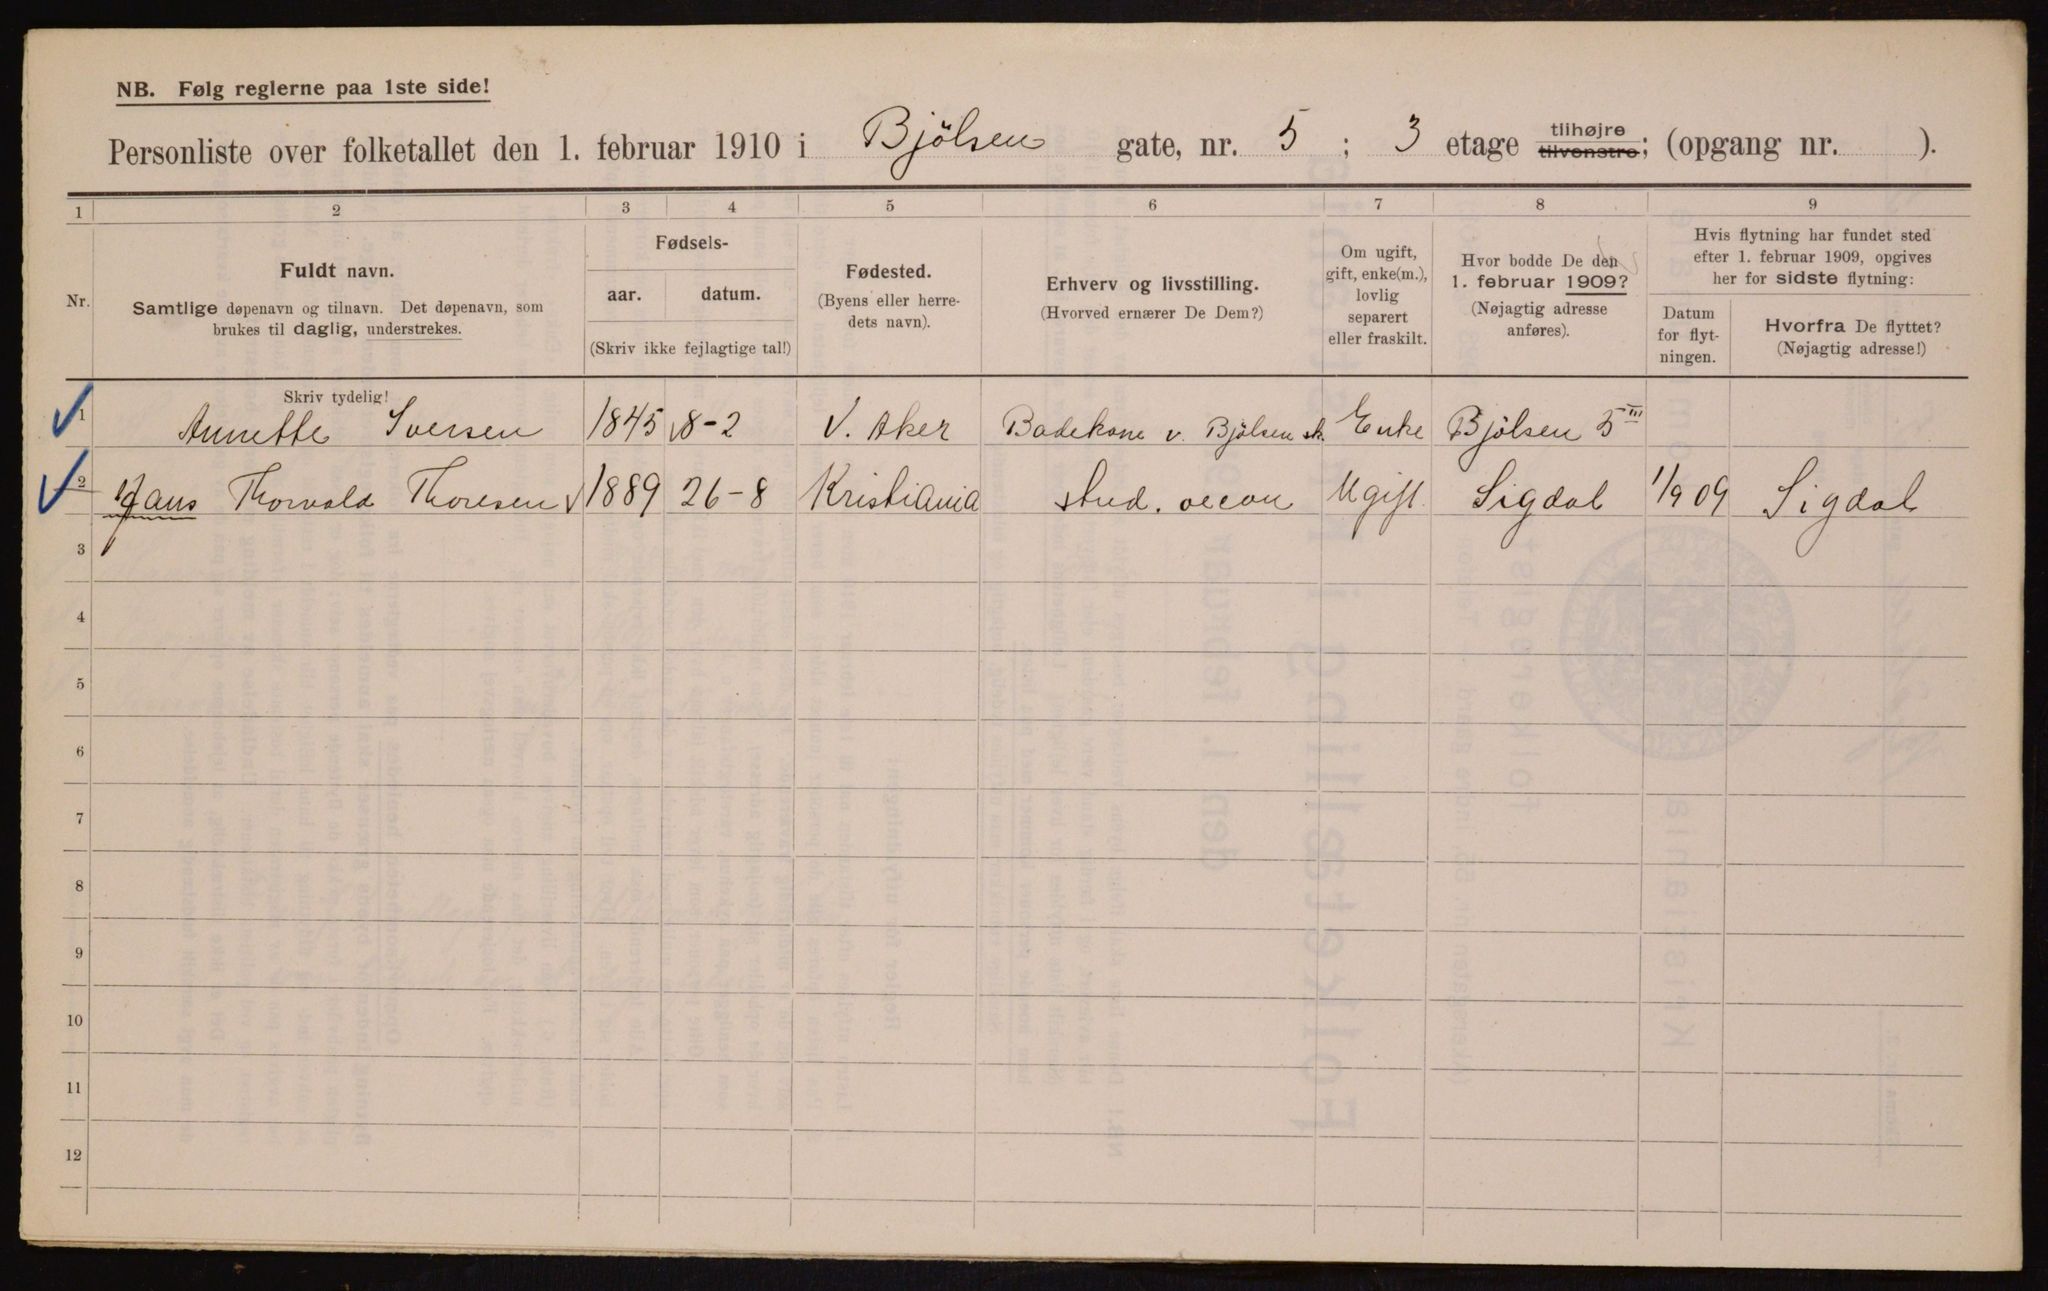 NB. Følg reglerne paa 1ste side!
Personliste over folketallet den 1. februar 1910 i Bjölsen gate, nr. 5 ; 3 etage tilhøjre tilvenstre; (opgang nr. ).
1 2 3 4 5 6 7 8 9
Nr.
Fuldt navn.
Samtlige døpenavn og tilnavn. Det døpenavn, som
brukes til daglig, understrekes.
Fødsels-
aar. datum.
(Skriv ikke fejlagtige tal!)
Fødested.
(Byens eller herre-
dets navn).
Erhverv og livsstilling.
(Hvorved ernærer De Dem?)
Om ugift,
gift, enke(m.),
lovlig
separert
eller fraskilt.
Hvor bodde De den
1. februar 1909?
(Nøjagtig adresse
anføres).
Hvis flytning har fundet sted
efter 1. februar 1909, opgives
her for sidste flytning:
Datum
for flyt-
ningen.
Hvorfra De flyttet?
(Nøjagtig adresse!)
Skriv tydelig!
1 Annette Iversen 1845 8-2 V. Aker Badekone v. Bjölsen sk. Enke Bjölsen 5 III
2 Hans Thorvald Thoresen 1889 26-8 Kristiania stud. oecon Ugift Sigdal 1/9 09 Sigdal
3
4
5
6
7
8
9
10
11
12